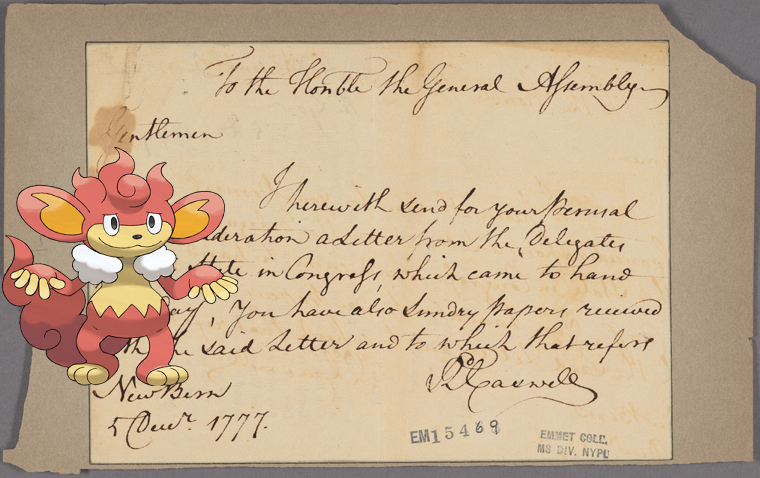 To the Honble the General Assembly
Gentlemen
I herewith send for your Perusal
deration a Letter from the Delegates
State in Congress, which came to hand
ay, You have also Sundry papers received
th the said Letter and to which that refers
Rd Caswell
New Bern
5 Decr. 1777.
EM15469
EMMET COLL.
MS DIV. NYPL